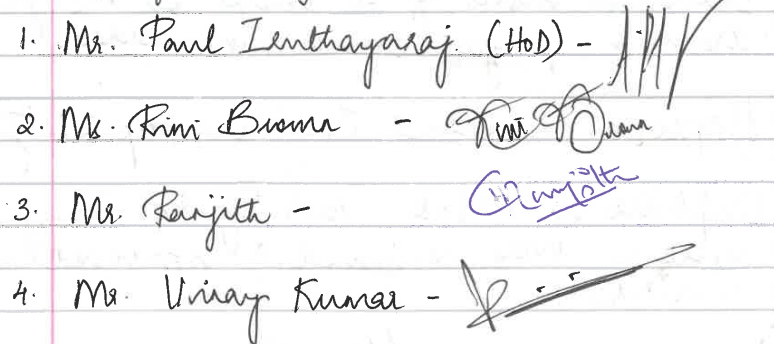 1. Mr. Paul Ienthayaraj. (HoD) -
2. Ms. Rini Bisma - Rini
3. Mr. Ranjith - Ranjith
4. Mr. Vinay Kumar -